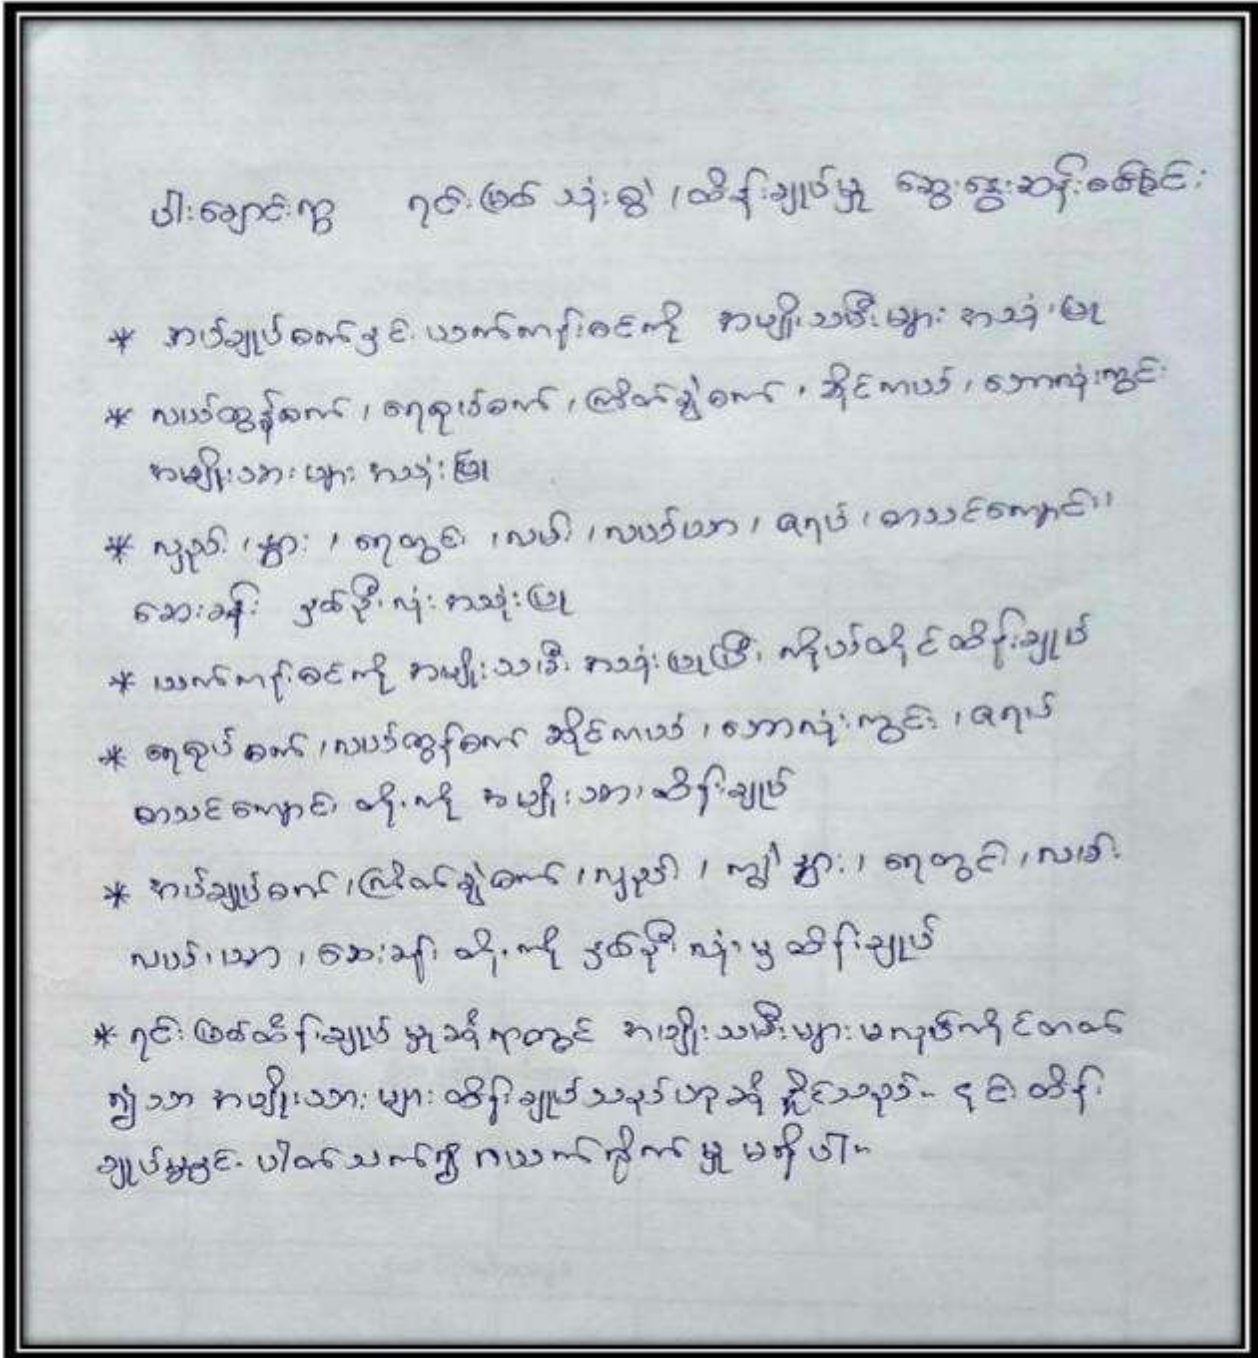 ပါးချောင်းကွ ရင်းမြစ် သုံးစွဲ ၊ ထိန်းချုပ်မှု ဆွေးနွေးဆန်းစစ်ခြင်း
* အပ်ချုပ်စက်နှင့် ယက်ကန်းစင်ကို အမျိုးသမီးများ အသုံးပြု
* လယ်ထွန်စက် ၊ ရေစုပ်စက် ၊ ကြိတ်ခွဲစက် ၊ ဆိုင်ကယ် ၊ ဘောလုံးကွင်း
အမျိုးသားများ အသုံးပြု
* လှည်း ၊ နွား ၊ ရေတွင်း ၊ လမ်း ၊ လယ်ယာ ၊ ဇရပ် ၊ စာသင်ကျောင်း ၊
ဆေးခန်း နှစ်ဦးလုံး အသုံးပြု
* ယက်ကန်းစင်ကို အမျိုးသမီး အသုံးပြုပြီး ကိုယ်တိုင်ထိန်းချုပ်
* ရေစုပ်စက် ၊ လယ်ထွန်စက် ဆိုင်ကယ် ၊ ဘောလုံးကွင်း ၊ ဇရပ်
စာသင်ကျောင်း တို့ကို အမျိုးသားထိန်းချုပ်
* အပ်ချုပ်စက် ၊ ကြိတ်ခွဲစက် ၊ လှည်း ၊ ကျွဲ နွား ၊ ရေတွင်း ၊ လမ်း
လယ်ယာ ၊ ဆေးခန်း တို့ကို နှစ်ဦးလုံးမှ ထိန်းချုပ်
* ရင်းမြစ်ထိန်းချုပ်မှုဆိုရာတွင် အမျိုးသမီးများ မလုပ်ကိုင်တတ်
၍သာ အမျိုးသားများ ထိန်းချုပ်သည်ဟုဆိုနိုင်သည်။ ၎င်းထိန်း
ချုပ်မှုနှင့် ပါတ်သက်၍ ဂယက်ရိုက်မှု မရှိပါ။